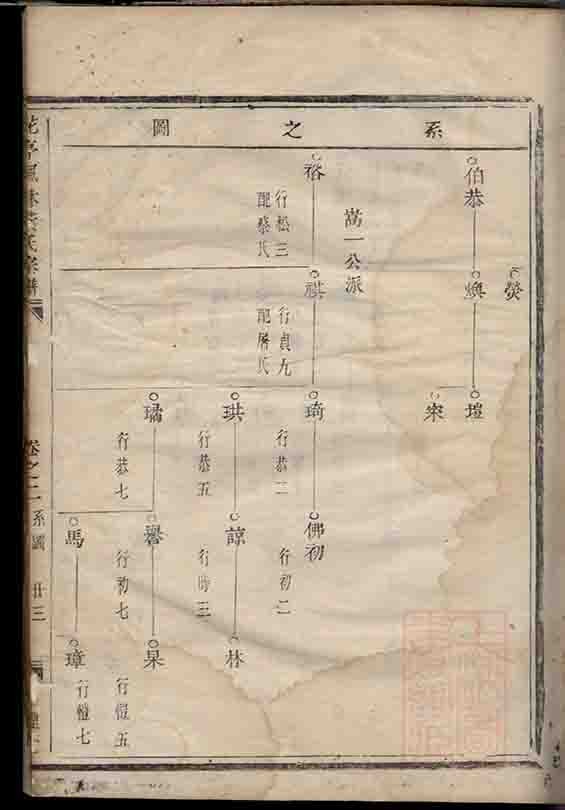 系之圖
熒
伯恭
煥
塏
來
嵩一公派
裕
行松三
配蔡氏
祺
行貞九
配屠氏
琦
行恭二
佛初
行初二
珙
行恭五
諒
行時三
林
璚
行恭七
譽
行初七
杲
行愷五
馬
璋
行愷七
卷之二
系圖
廿三